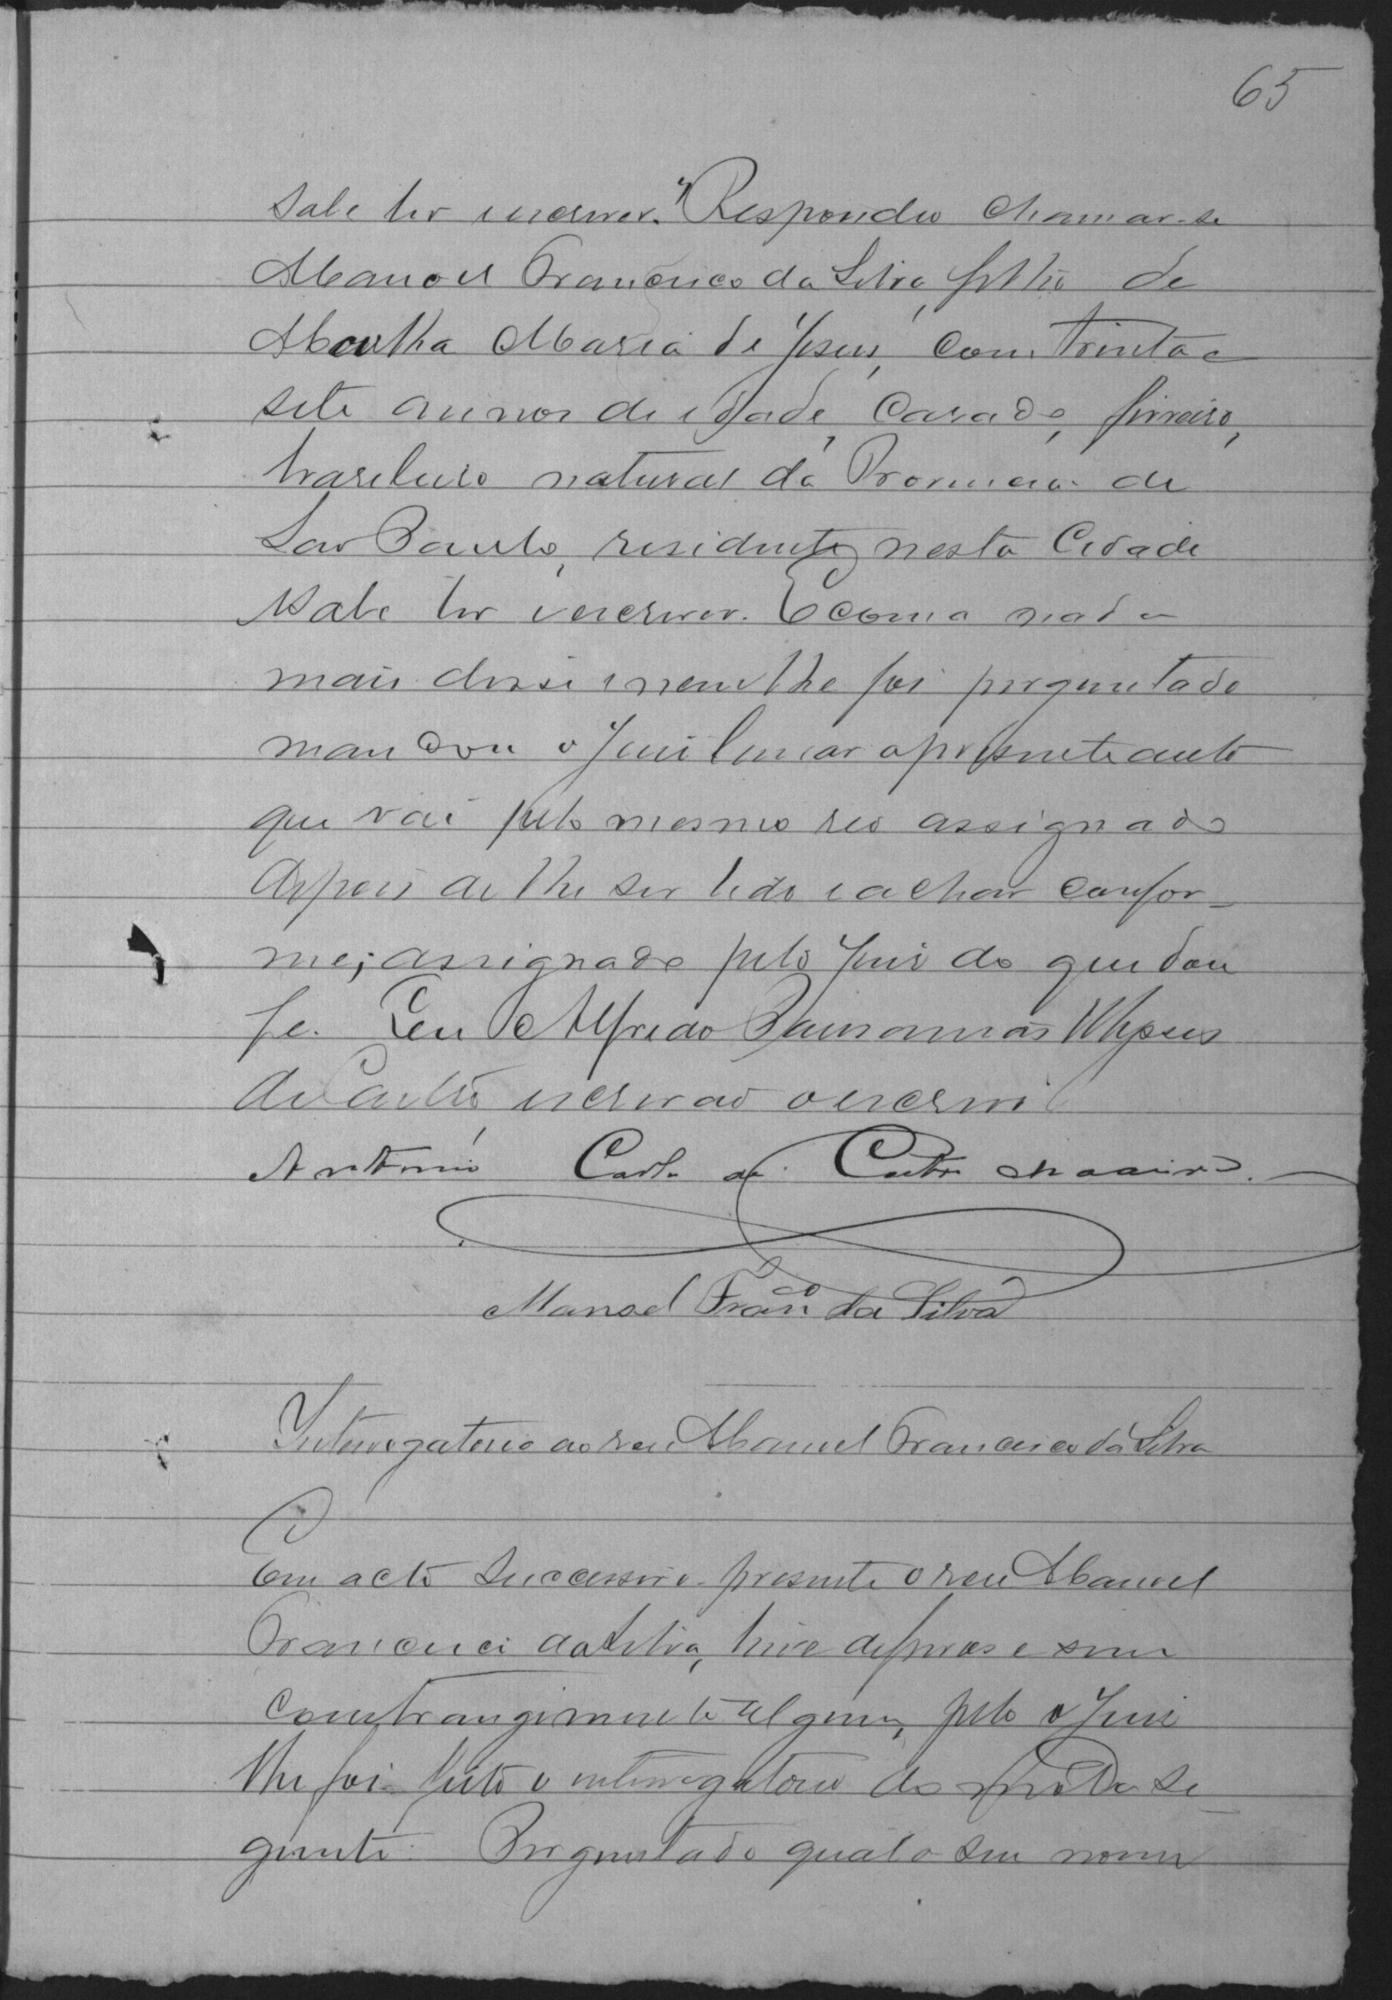 65
sabe ler e escrever. Respondeu chamar-se
Manoel Francisco da Silva, filho de
Martha Maria de Jesus, com trinta e
sete annos de idade, casado, ferreiro,
brasileiro natural da Provincia de
Sao Paulo, residente nesta Cidade
sabe ler e escrever. E como nada
mais disse e nem lhe foi perguntado
mandou o Juiz lavrar o presente auto
que vai pelo mesmo reo assignado
depois de lhe ser lido e achar confor-
me; assignado pelo Juiz do que dou
fe. Eu Alfredo Ulysses
de Castro escrivao o escrevi
Antonio Carlos de Castro
Manoel Franco da Silva
Interrogatorio ao reu Manoel Francisco da Silva
Em acto successivo presente o reu Manoel
Francisco da Silva, livre de ferros e sem
constrangimento algum, pelo o Juiz
lhe foi feito o interrogatorio do modo se
guinte. Perguntado qual o seu nome